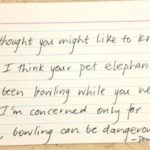 thought you might like to kn
I think your pet elephan
been bowling while you we
I'm concerned only for
, bowling can be dangerou